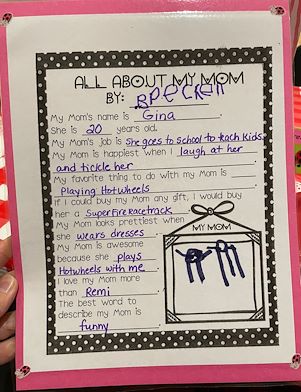 ALL ABOUT MY MOM
BY: BPECKEN
My Mom's name is Gina.
She is 20 years old.
My Mom's job is She goes to school to teach kids.
My Mom is happiest when I laugh at her
and tickle her.
My favorite thing to do with my Mom is
Playing Hotwheels.
If I could buy my Mom any gift, I would buy
her a Superfire racetrack.
My Mom looks prettiest when
she wears dresses.
My Mom is awesome
because she plays
Hotwheels with me.
I love my Mom more
than Remi.
The best word to
describe my Mom is
funny.
MY MOM